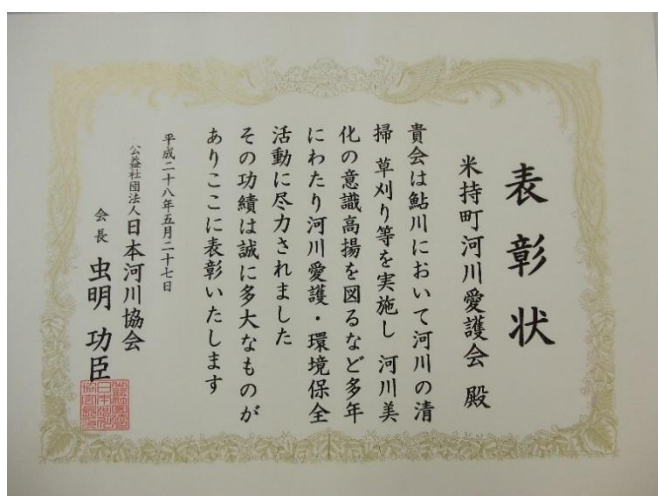 表彰状
米持町河川愛護会 殿
貴会は鮎川において河川の清
掃 草刈り等を実施し 河川美
化の意識高揚を図るなど多年
にわたり河川愛護・環境保全
活動に尽力されました
その功績は誠に多大なものが
ありここに表彰いたします
平成二十八年五月二十七日
公益社団法人日本河川協会
会長 虫明 功臣